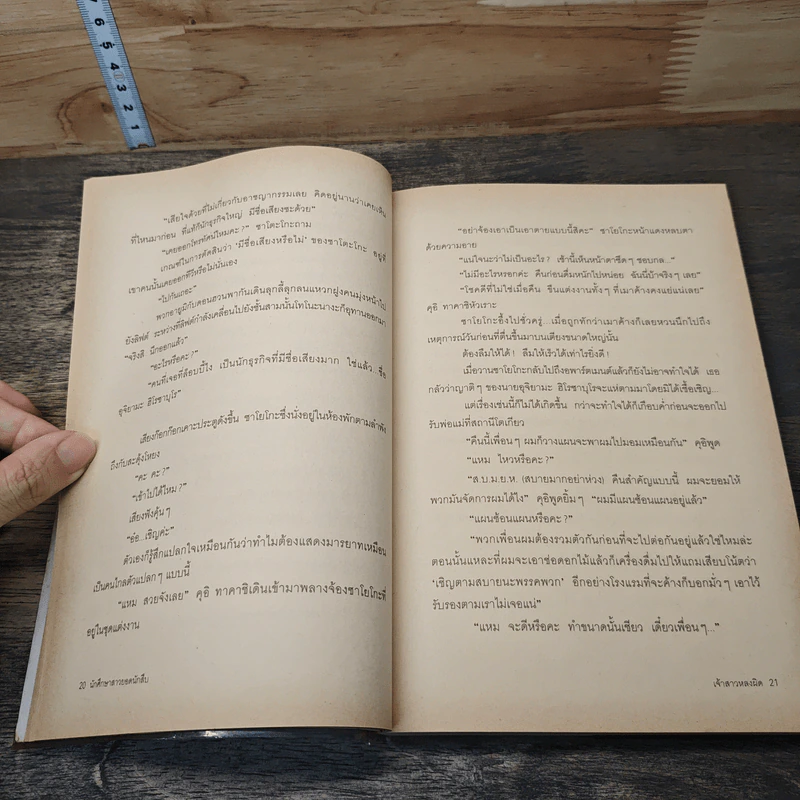 7 6 5 4 3 2 1
"เสียใจด้วยที่ไม่เกี่ยวกับอาชญากรรมเลย คิดอยู่นานว่าเคยเห็น
ที่ไหนมาก่อน ที่แท้ก็นักธุรกิจใหญ่ มีชื่อเสียงซะด้วย"
"เคยออกโทรทัศน์ไหมคะ?" ซาโตะโกะถาม
เกณฑ์ในการตัดสินว่า 'มีชื่อเสียงหรือไม่' ของซาโตะโกะ อยู่ที่
เขาคนนั้นเคยออกทีวีหรือไม่นั่นเอง
"ไปกันเถอะ"
พวกอายูมิกับคอนฮวนพากันเดินลุกลี้ลุกลนแหวกฝูงคนมุ่งหน้าไป
ยังลิฟต์ ระหว่างที่ลิฟต์กำลังเคลื่อนไปยังชั้นสามนั้นโทโนะนางะก็อุทานออกมา
"จริงสิ นึกออกแล้ว"
"อะไรหรือคะ?"
"คนที่เจอที่ล็อบบี้ไง เป็นนักธุรกิจที่มีชื่อเสียงมาก ใช่แล้ว ชื่อ
อุจิยามะ ฮิโรซาบุโร"
เสียงก๊อกก๊อกเคาะประตูดังขึ้น ซาโยโกะซึ่งนั่งอยู่ในห้องพักตามลำพัง
ถึงกับสะดุ้งโหยง
"คะ คะ?"
"เข้าไปได้ไหม?"
เสียงฟังคุ้นๆ
"อ๋อ...เชิญค่ะ"
ตัวเองก็รู้สึกแปลกใจเหมือนกันว่าทำไมต้องแสดงมารยาทเหมือน
เป็นคนไกลตัวแปลกๆ แบบนี้
"แหม สวยจังเลย" คุอิ ทาคาชิเดินเข้ามาพลางจ้องซาโยโกะที่
อยู่ในชุดแต่งงาน
20 นักศึกษาสาวยอดนักสืบ
"อย่าจ้องเอาเป็นเอาตายแบบนี้สิคะ" ซาโยโกะหน้าแดงหลบตา
ด้วยความอาย
"แน่ใจนะว่าไม่เป็นอะไร? เช้านี้เห็นหน้าตาซีดๆ ชอบกล..."
"ไม่มีอะไรหรอกค่ะ คืนก่อนดื่มหนักไปหน่อย ฉันนี่บ้าจริงๆ เลย"
"โชคดีที่ไม่ใช่เมื่อคืน ขืนแต่งงานทั้งๆ ที่เมาค้างคงแย่แน่เลย"
คุอิ ทาคาชิหัวเราะ
ซาโยโกะอึ้งไปชั่วครู่...เมื่อถูกทักว่าเมาค้างก็เลยหวนนึกไปถึง
เหตุการณ์วันก่อนที่ตื่นขึ้นมาบนเตียงขนาดใหญ่นั้น
ต้องลืมให้ได้! ลืมให้เร็วได้เท่าไรยิ่งดี!
เมื่อวานซาโยโกะกลับไปถึงอพาร์ตเมนต์แล้วก็ยังไม่อาจทำใจได้ เธอ
กลัวว่าญาติๆ ของนายอุจิยามะ ฮิโรซาบุโรจะแห่ตามมาโดยมิได้เชื้อเชิญ...
แต่เรื่องเช่นนี้ก็ไม่ได้เกิดขึ้น กว่าจะทำใจได้ก็เกือบค่ำก่อนจะออกไป
รับพ่อแม่ที่สถานีโตเกียว
"คืนนี้เพื่อนๆ ผมก็วางแผนจะพาผมไปมอมเหมือนกัน" คุอิพูด
"แหม ไหวหรือคะ?"
"ส.บ.ม.ย.ห. (สบายมากอย่าห่วง) คืนสำคัญแบบนี้ ผมจะยอมให้
พวกมันจัดการผมได้ไง" คุอิพูดยิ้มๆ "ผมมีแผนซ้อนแผนอยู่แล้ว"
"แผนซ้อนแผนหรือคะ?"
"พวกเพื่อนผมต้องรวมตัวกันก่อนที่จะไปต่อกันอยู่แล้วใช่ไหมล่ะ
ตอนนั้นแหละที่ผมจะเอาช่อดอกไม้แล้วก็เครื่องดื่มไปให้แถมเสียบโน้ตว่า
'เชิญตามสบายนะพรรคพวก' อีกอย่างโรงแรมที่จะค้างก็บอกมั่วๆ เอาไว้
รับรองตามเราไม่เจอแน่"
"แหม จะดีหรือคะ ทำขนาดนั้นเชียว เดี๋ยวเพื่อนๆ..."
เจ้าสาวหลงผิด 21